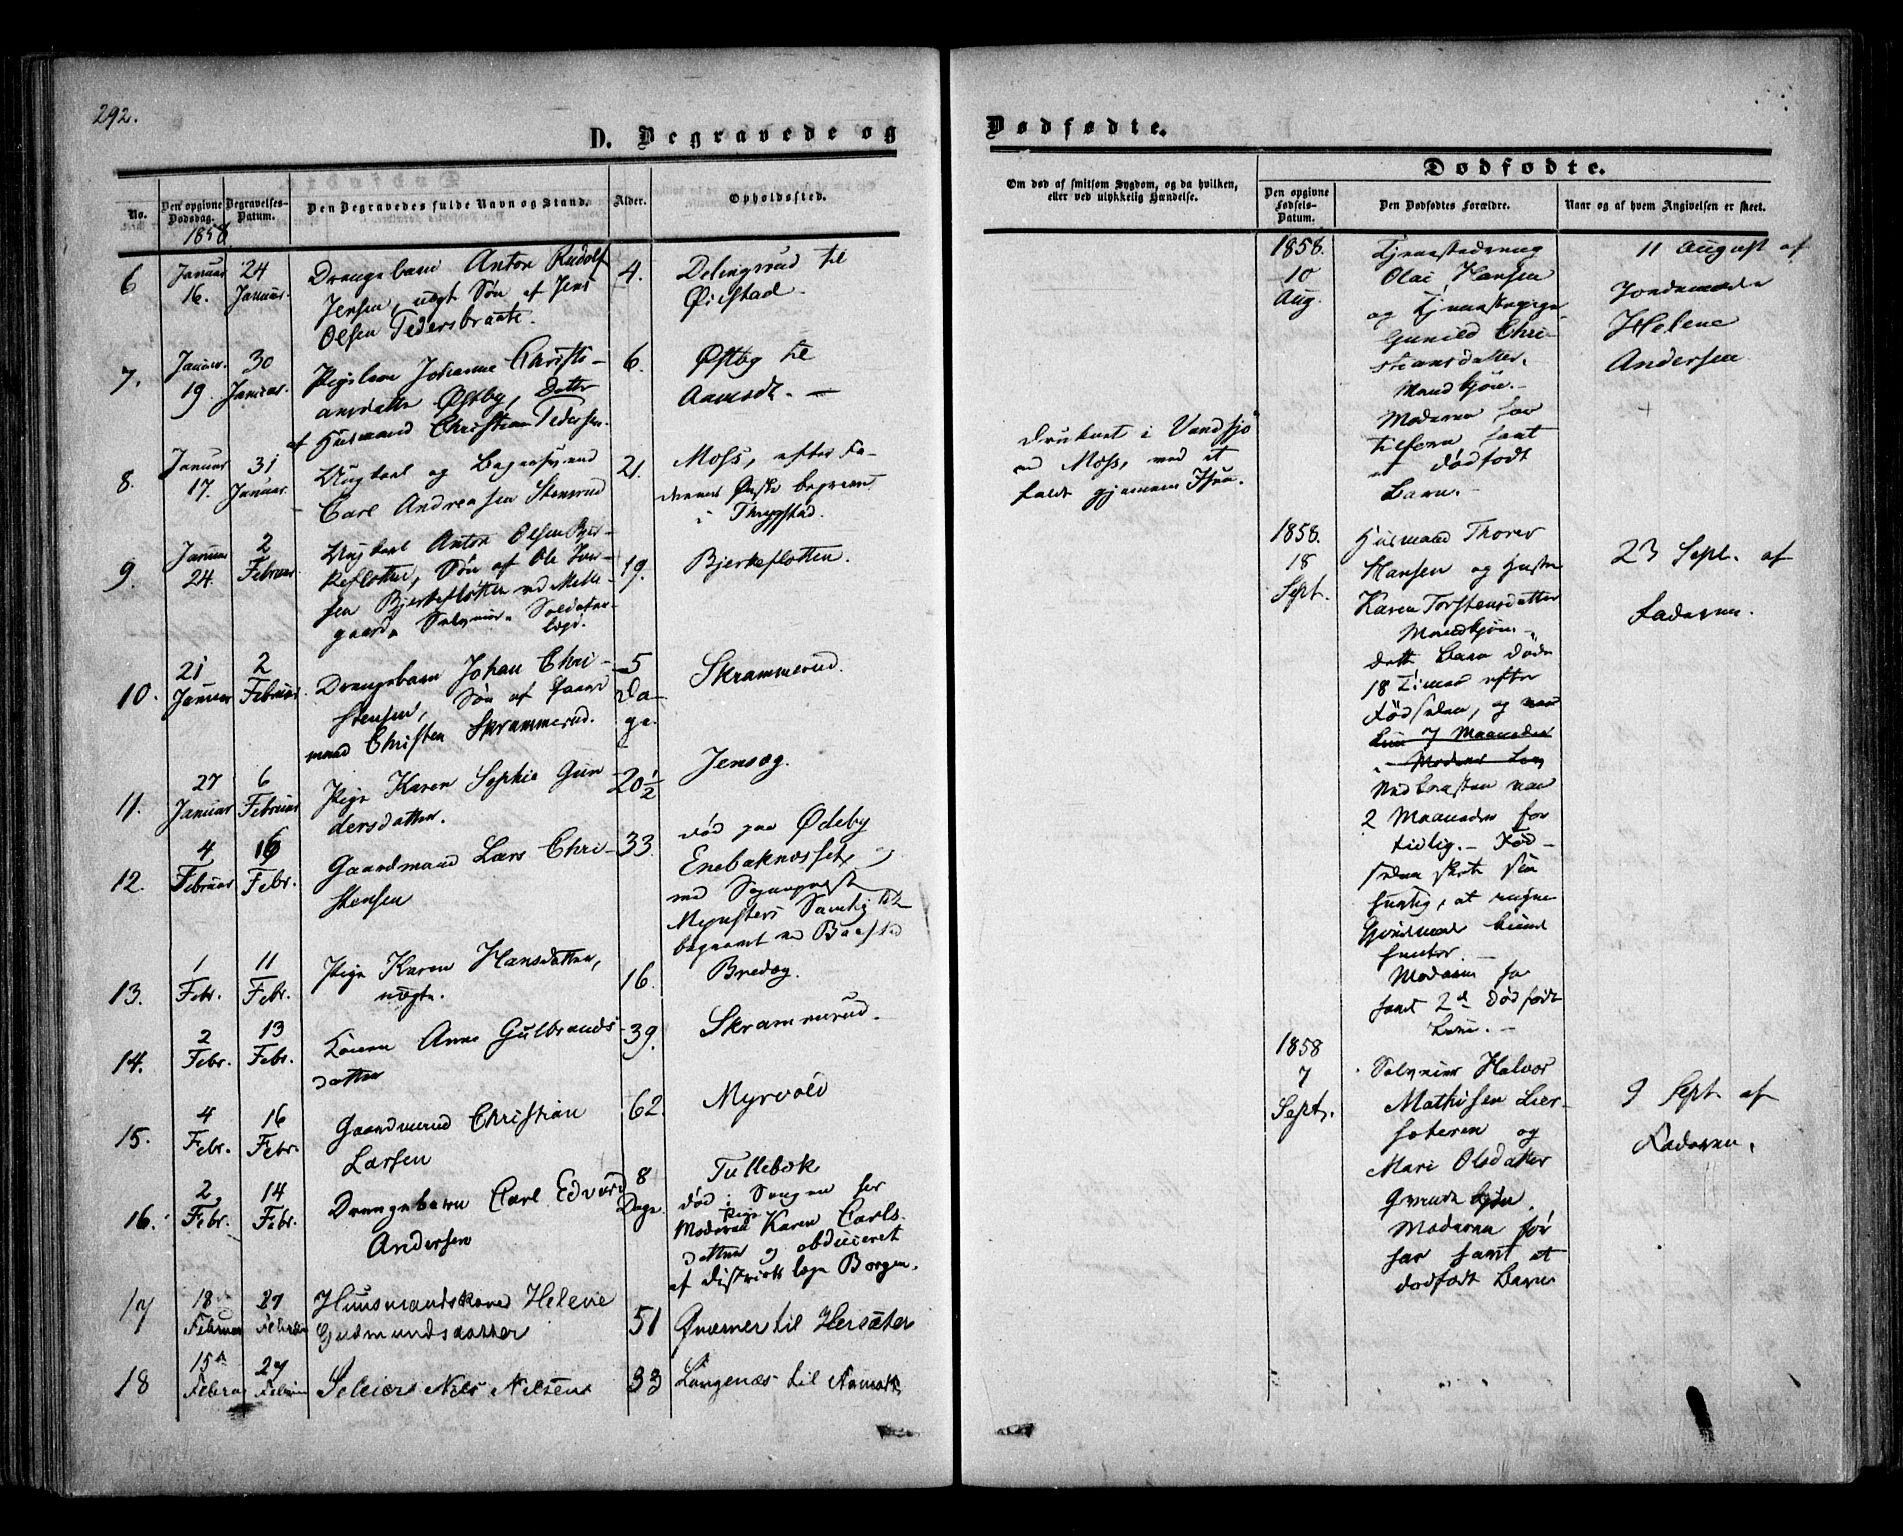 292.
D. Begravede og
No.
Den opgivne Dødsdag.
Begravelses-Datum.
Den Begravedes fulde Navn og Stand.
Alder.
Opholdssted.
1858
6
Januar 16.
24 Januar.
Drengebarn Anton Rudolf
Jensen, uægt. Søn af Jens
Olsen Pedersbraate.
4.
Delingsrud til
Øiestad
7.
Januar. 19.
30 Januar.
Pigebarn Johanne Christi-
ansdatter Østby, Datter
af Husmand Christian Pedersen.
6.
Østby til
8.
Januar 17.
31 Januar.
Ungkarl og Bagersvend
Carl Andreasen Stensrud
21.
Moss, efter Fa-
derens Ønske begravet
i Thrygstad.
9.
Januar 24.
2 Februar
Ungkarl Anton Olsen Bjer-
keflotten, Søn af Ole
Bjerkeflotten
19.
Bjerkeflotten.
10.
21 Januar
2 Februar
Drengebarn Johan Chri-
stensen, Søn af Gaard-
mand Christen Skrammerud.
5
Da-
ge.
Skrammerud.
11.
27 Januar
6 Februar
Pige Karen Sophie Gun
dersdatter.
20½
Jensøg.
12.
4 Februar
16 Febr.
Gaardmand Lars Chri-
stensen
33.
død paa Ødeby
Enebaknæsset,
med Sognepræst
Mynsters Samtykke
begravet ved Baastad
13.
1 Febr.
11 Febr.
Pige Karen Hansdatter,
uægte.
16.
Bredøg.
14.
2 Febr.
13 Febr.
Konen Anne Gulbrands-
datter
39.
Skrammerud.
15.
4 Febr.
16 Febr.
Gaardmand Christian
Larsen
62.
Myrvold
16.
2 Febr.
14 Febr.
Drengebarn Carl Edvard
Andersen
8
Dage.
Tullebæk
død i Sengen hos
Moderen Pige Karen Carls-
datter og obduceret
af Districtslæge Borgen.
17
18 Februar
27 Februar
Huusmandskone Helene
Gudmundsdatter
51
til Hersæter
18
15de Februar
27 Februar
Seleier Nils Nilsen
33
Langenæs til
Dødfødte.
Om død af smitsom Sygdom, og da hvilken,
eller ved ulykkelig Hændelse.
Dødfødte.
Den opgivne Fødsels-Datum.
Den Dødfødtes Forældre.
Naar og af hvem Angivelsen er skeet.
druknet i Vandsjø
ved Moss, ved at
falde gjennem Isen.
1858.
10
Aug.
Tjenestedreng
Olai Hansen
og Tjenestepige
Gunild Chri-
stiansdatter.
Mandkjøn.-
Moderen har
tilforn havt
et dødfødt
Barn.-
11 August af
Jordemoder
Helene
Andersen
1858.
18
Sept.
Husmand Thorer
Hansen og Hustru
Karen Torstensdatter
Mandkjøn-
dette Barn døde
18 Timer efter
Fødselen, og var
7 Maaneder
Nedkomsten var
2 Maaneder for
tidlig.- Fød-
selen skete saa
hurtig, at ingen
Moderen har
havt 2de dødfødte
Børn.-
23 Sept. af
Faderen.
1858
7
Sept.
Selveier Halvor
Mathisen Lier-
foteren og
Mari Olsdatter
Qvindekjøn.
Moderen før
har havt et
dødfødt Barn
9 Sept af
Faderen.